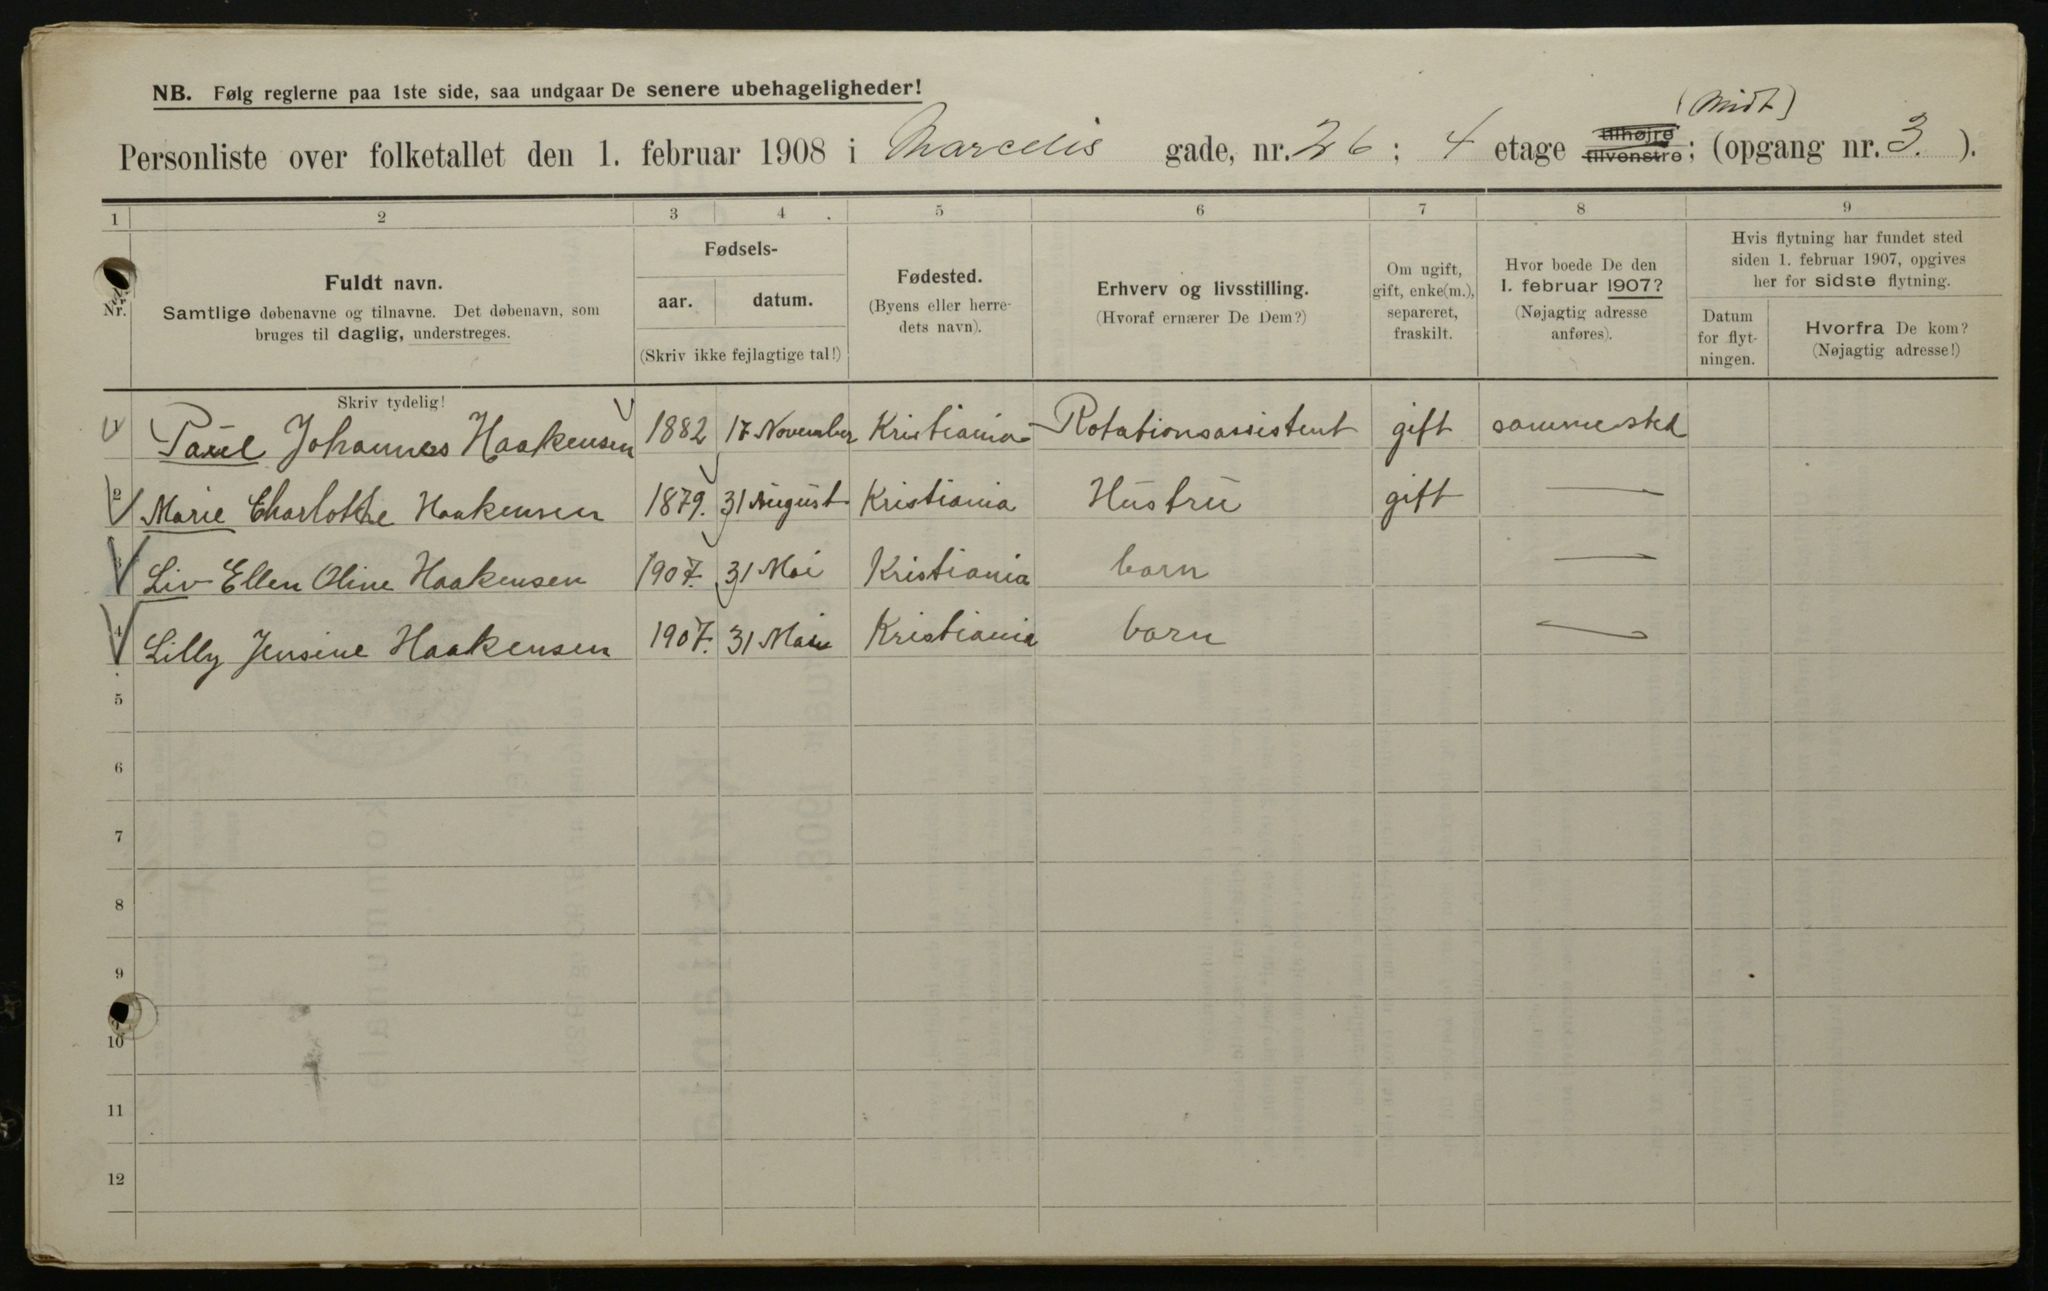 NB. Følg reglerne paa 1ste side, saa undgaar De senere ubehageligheder!
(Midt)
Personliste over folketallet den 1. februar 1908 i Marcelis gade, nr. 26; 4 etage tilhøjre tilvenstre; (opgang nr. 3.).
1 2 3 4 5 6 7 8 9
Nr.
Fuldt navn.
Samtlige døbenavne og tilnavne. Det døbenavn, som
bruges til daglig, understreges.
Fødsels-
aar. datum.
(Skriv ikke fejlagtige tal!)
Fødested.
(Byens eller herre-
dets navn).
Erhverv og livsstilling.
(Hvoraf ernærer De Dem?)
Om ugift,
gift, enke(m.),
separeret,
fraskilt.
Hvor boede De den
1. februar 1907?
(Nøjagtig adresse
anføres).
Hvis flytning har fundet sted
siden 1. februar 1907, opgives
her for sidste flytning.
Datum
for flyt-
ningen.
Hvorfra De kom?
(Nøjagtig adresse!)
Skriv tydelig!
1 Paul Johannes Haakensen 1882 17 November Kristiania Rotationsassistent gift sammested
2 Marie Charlotte Haakensen 1879. 31 August Kristiania Hustru gift —
3 Liv Ellen Oline Haakensen 1907. 31 Mai Kristiania barn —
4 Lilly Jensine Haakensen 1907. 31 Mai Kristiania barn —
5
6
7
8
9
10
11
12